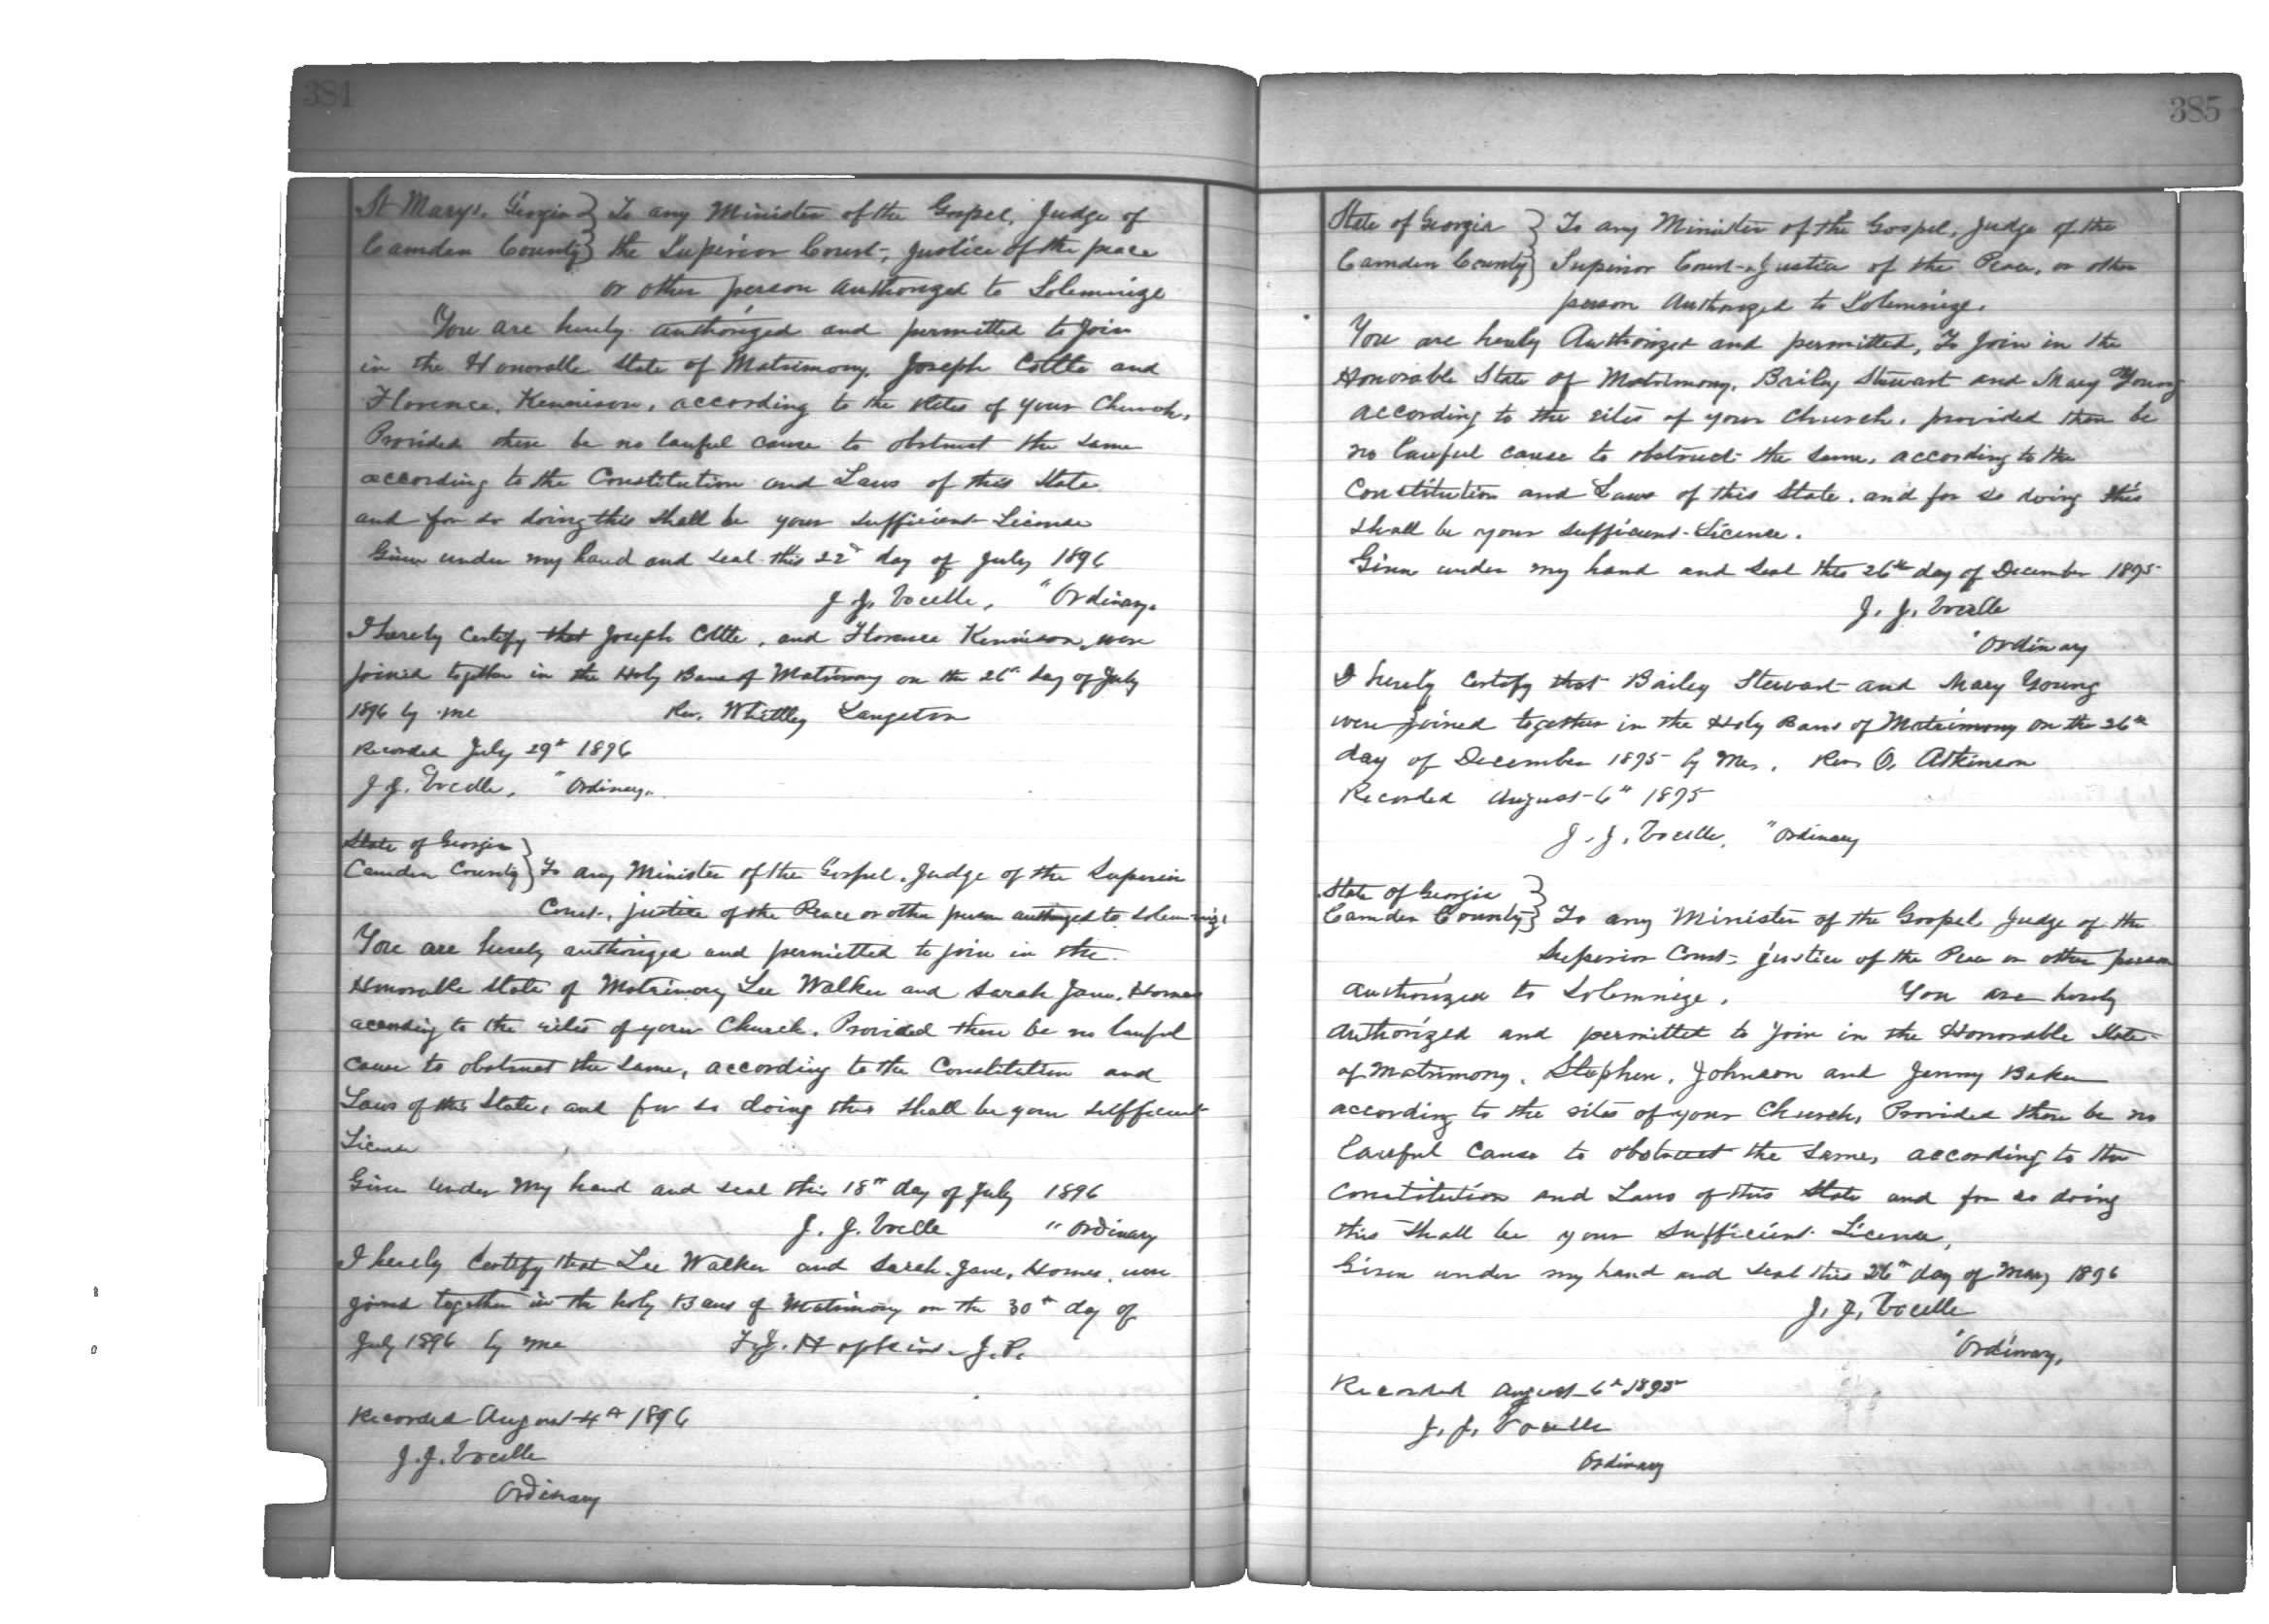 384
St Marys. Georgia } To any Minister of the Gospel, Judge of
Camden County } the Superior Court, Justice of the peace
or other person authorized to Solemnize
You are hereby authorized and permitted to Join
in the Honorable State of Matrimony. Joseph Cottle and
Florence. Kennison, according to the rites of your Church,
Provided there be no lawful cause to obstruct the same
according to the Constitution and Laws of this State.
and for so doing this shall be your sufficient License
Given under my hand and seal this 22d day of July 1896
J. J. Vocelle, " Ordinary.
I hereby Certify that Joseph Cottle, and Florence Kennison, were
joined together in the Holy Bans of Matrimony on the 26th day of July
1896 by me Rev. Whittley Langston
Recorded July 29th 1896
J. J. Vocelle, " Ordinary.
State of Georgia }
Camden County } To any Minister of the Gospel. Judge of the Superior
Court, justice of the Peace or other person authorized to solemnize
You are hereby authorized and permitted to join in the
Honorable State of Matrimony Lee Walker and Sarah Jane. Homes
according to the rites of your Church. Provided there be no lawful
cause to obstruct the same, according to the Constitution and
Laws of this State, and for so doing this shall be your sufficient
License
Given under my hand and seal this 18th day of July 1896
J. J. Vocelle " Ordinary
I hereby Certify that Lee Walker and Sarah Jane, Homes, were
joined together in the holy Bans of Matrimony on the 30th day of
July 1896 by me Hopkins J. P.
Recorded August 4th 1896
J. J. Vocelle
Ordinary
385
State of Georgia } To any Minister of the Gospel, Judge of the
Camden County } Superior Court - Justice of the Peace, or other
person Authorized to Solemnize.
You are hereby Authorized and permitted, To Join in the
Honorable State of Matrimony. Briley Stewart and Mary Young
according to the rites of your Church, provided there be
no lawful cause to obstruct the same, according to the
Constitution and Laws of this State. and for so doing this
shall be your sufficient License.
Given under my hand and seal this 26th day of December 1895
J. J. Vocelle
" Ordinary
I hereby Certify that Bailey Stewart and Mary Young
were joined together in the Holy Bans of Matrimony on the 26th
day of December 1895 by Me, Rev O. Atkinson
Recorded August 6th 1895
J. J. Vocelle, " Ordinary
State of Georgia }
Camden County } To any Minister of the Gospel Judge of the
Superior Court - justice of the Peace or other person
authorized to Solemnize, You are hereby
authorized and permitted to join in the Honorable State
of Matrimony, Stephen, Johnson and Jenny Baker
according to the rites of your Church, Provided there be no
Lawful Cause to obstruct the same, according to the
Constitution and Laws of this State and for so doing
this shall be your sufficient License,
Given under my hand and seal this 26th day of May 1896
J. J. Vocelle
" Ordinary,
Recorded August 6th 1895
J. J. Vocelle
Ordinary